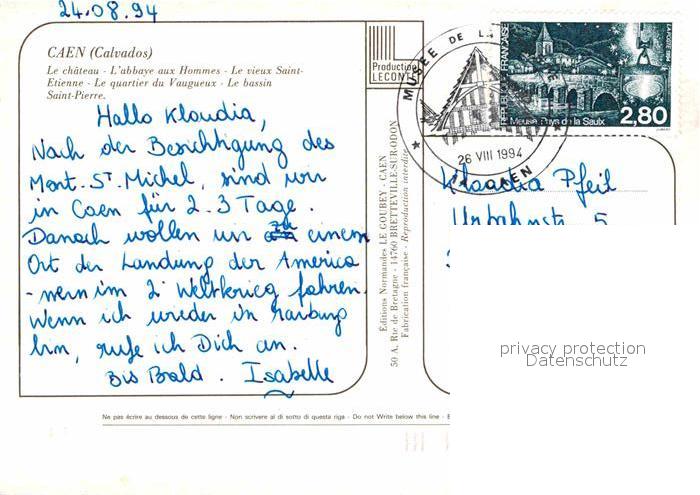 24.08.94
CAEN (Calvados)
Le château - L'abbaye aux Hommes - Le vieux Saint-
Etienne - Le quartier du Vaugueux - Le bassin
Saint-Pierre.
Production
LECONTE
Hallo Klaudia,
Nach der Besichtigung des
Mont. St. Michel, sind wir
in Caen für 2-3 Tage.
Danach wollen wir zu einem
Ort der Landung der America
-nern im 2. Weltkrieg fahren.
Wenn ich wieder in Marburg
bin, rufe ich Dich an.
Bis Bald. Isabelle
Éditions Normandes LE GOUBEY - CAEN
50 A, Rte de Bretagne - 14760 BRETTEVILLE-SUR-ODON
Fabrication française - Reproduction interdite
MUSEE DE LA
26 VIII 1994
CAEN
REPUBLIQUE FRANÇAISE
LA POSTE 1994
2,80
Meuse Pays de la Saulx
Klaudia Pfeil
5
privacy protection
Datenschutz
Ne pas écrire au dessous de cette ligne - Non scrivere al di sotto di questa riga - Do not Write below this line -